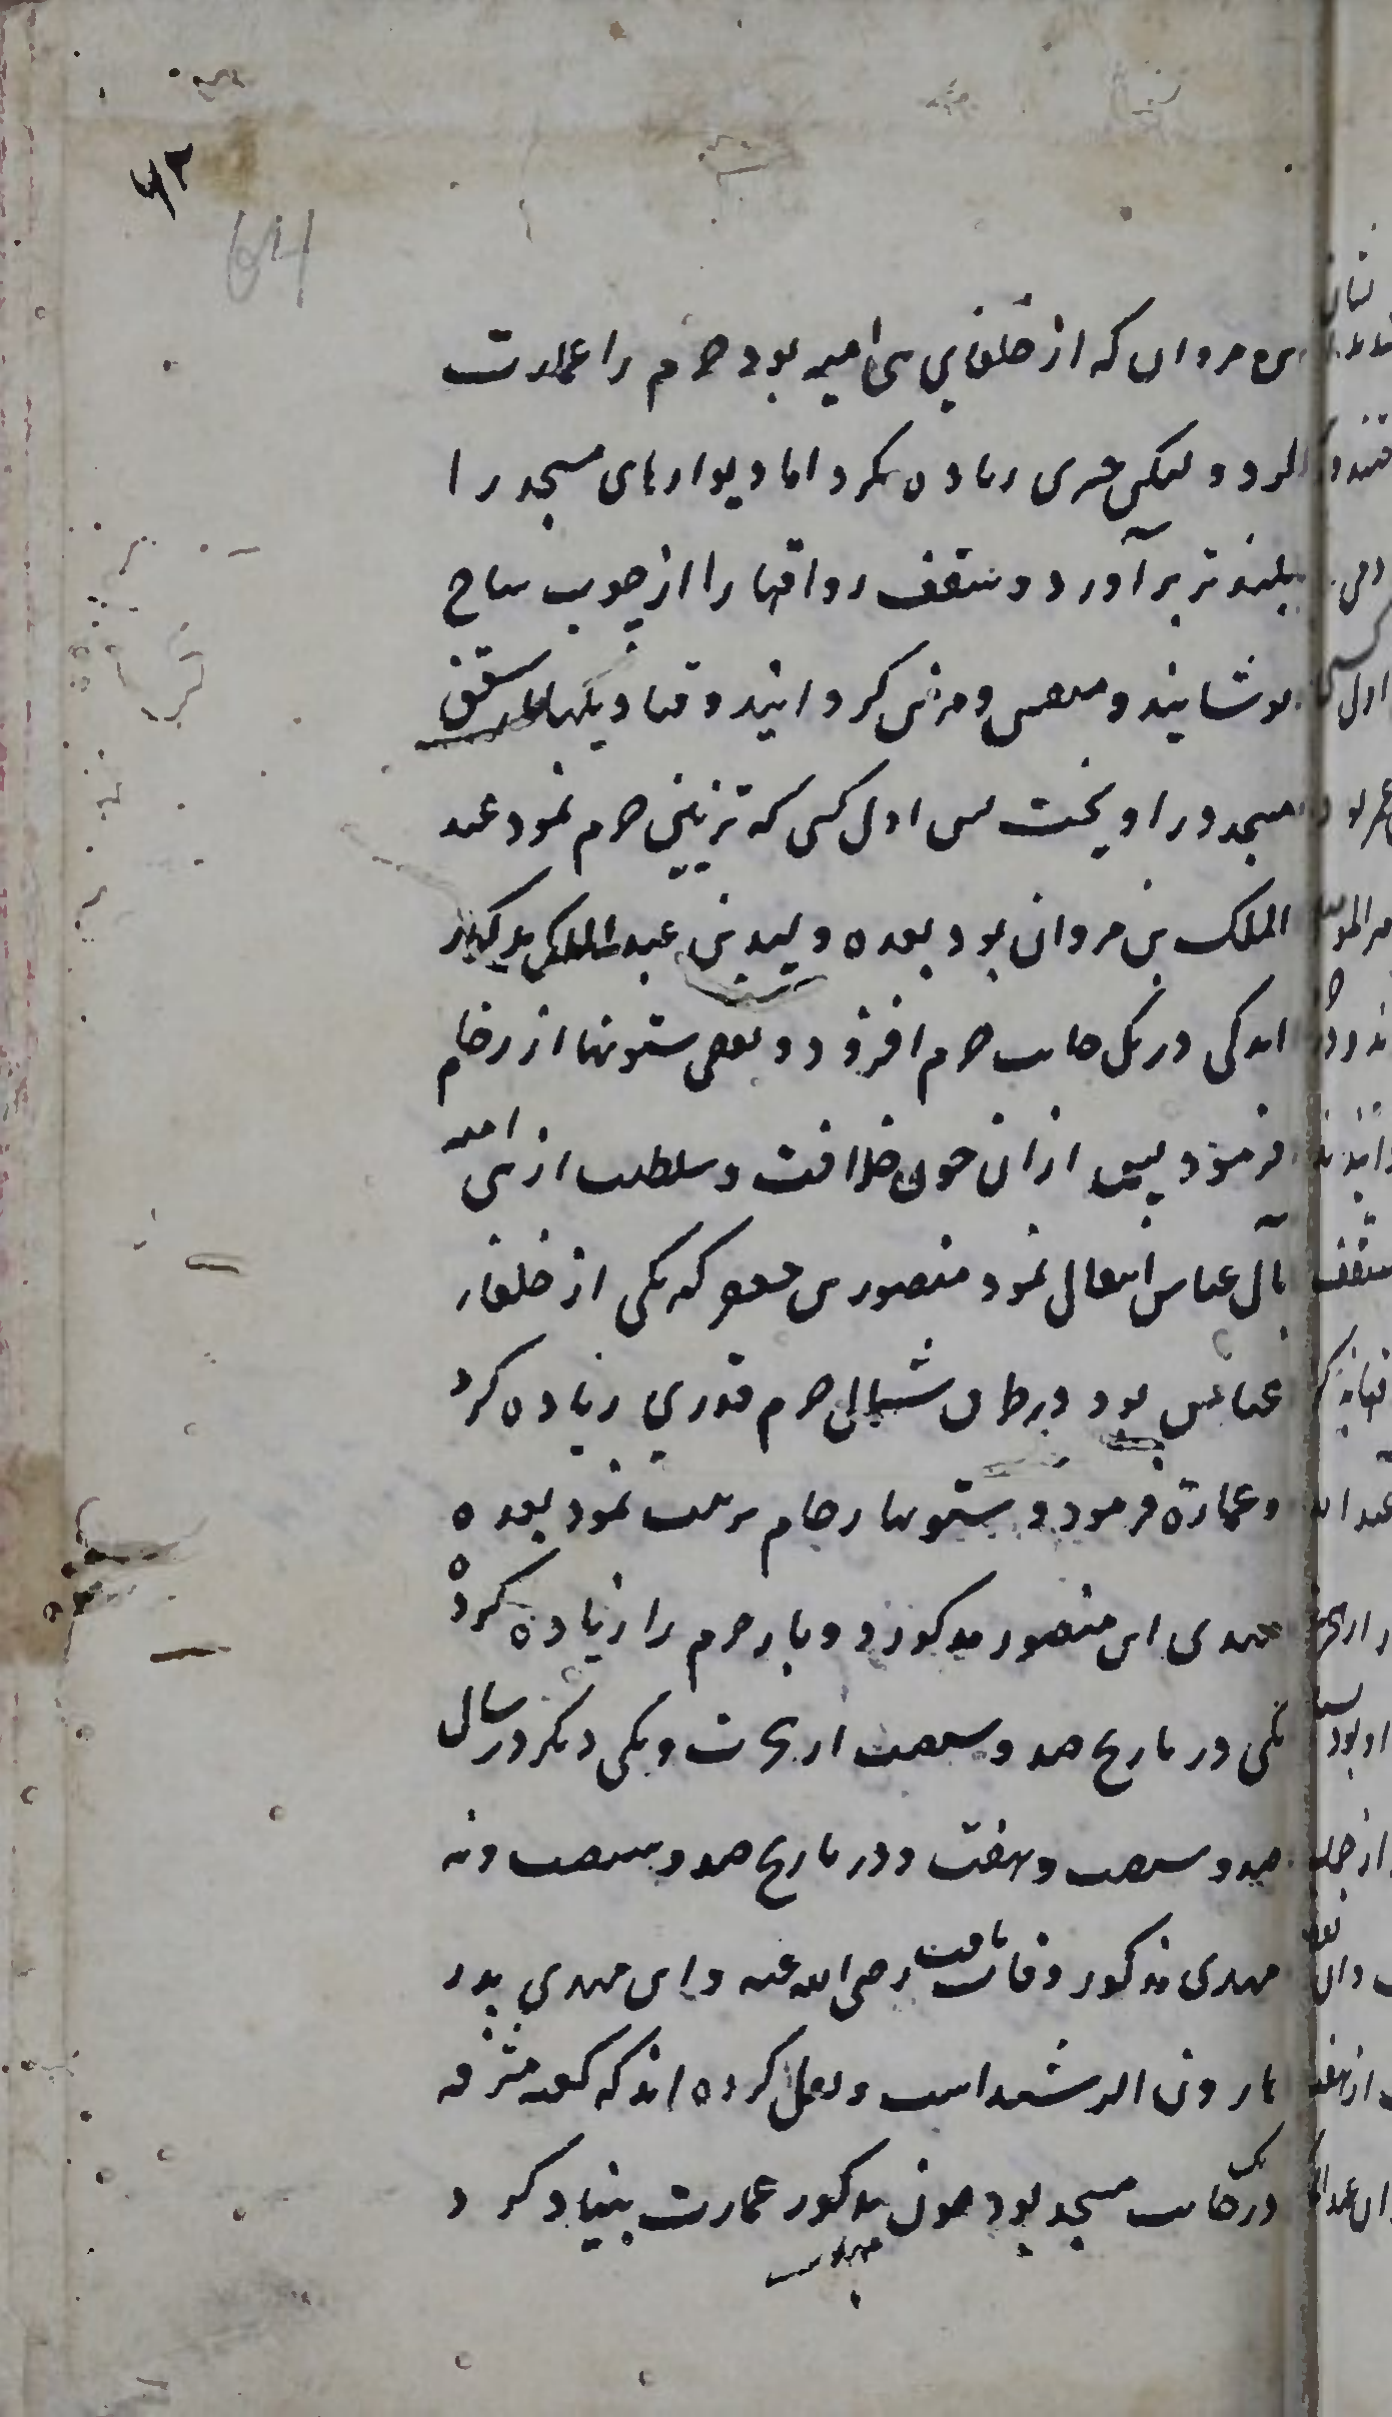 ۶۳
64
بن مروان که از خلفای بنی امیه بود حرم را عمارت
کرد و لیکن چیزی زیاده نکرد اما دیوارهای مسجد را
بلند تر برآورد و سقف رواقها را از چوب ساج
پوشانید و منقش و مزین گردانید و قنادیلها سقف
مسجد در اویخت پس اول کسی که تزیین حرم نمود عبد
الملک بن مروان بود بعده ولید بن عبد الملک مذکور
اندکی در یک جانب حرم افزود و بعضی ستونها از رخام
فرمود پس ازان چون خلافت و سلطنت از بنی امیه
بآل عباس انتقال نمود منصور بن جعفر که یکی از خلفاء
عباس بود در طرف شمالی حرم قدری زیاده کرد
و عمارة فرمود و ستونها رخام مرتب نمود بعده
مهدی ابن منصور مذکور دو بار حرم را زیاده کرده
یکی در تاریخ صد و شصت از هجرت و یکی دیگر در سال
صد و شصت و هفت و در تاریخ صد و شصت و نه
مهدی مذکور وفات یافت رضی الله عنه و این مهدی پدر
هارون الرشید است و نقل کرده اند که کعبه مشرفه
در یک جانب مسجد بود چون مذکور عمارت بنیاد کرد